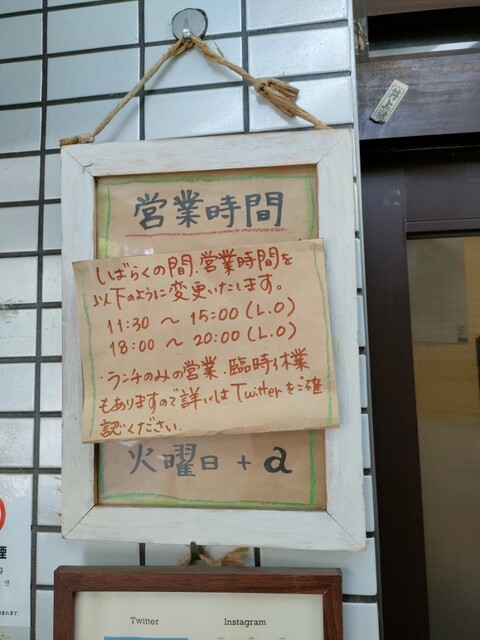 営業時間
しばらくの間、営業時間を
以下のように変更いたします。
11:30 〜 15:00 (L.O)
18:00 〜 20:00 (L.O)
・ランチのみの営業、臨時休業
もありますので詳しいはTwitterをご確
認ください。
火曜日 + a
Twitter
Instagram